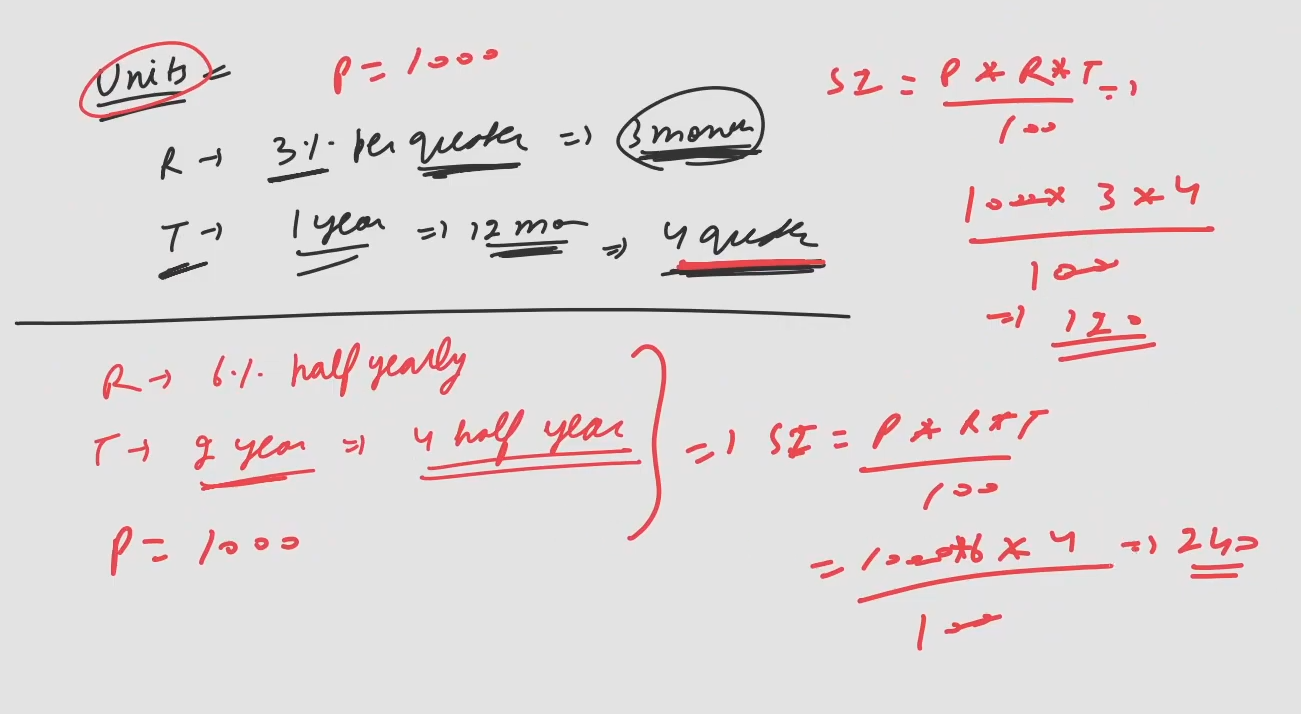 Units
P = 1000
R → 3% per quarter => 3 month
T → 1 year => 12 mon => 4 quarter
SI = P * R * T
100
1000 * 3 * 4
100
=> 120
R → 6% half yearly
T → 2 year => 4 half year
P = 1000
=> SI = P * R * T
100
= 1000 * 6 * 4 => 240
100